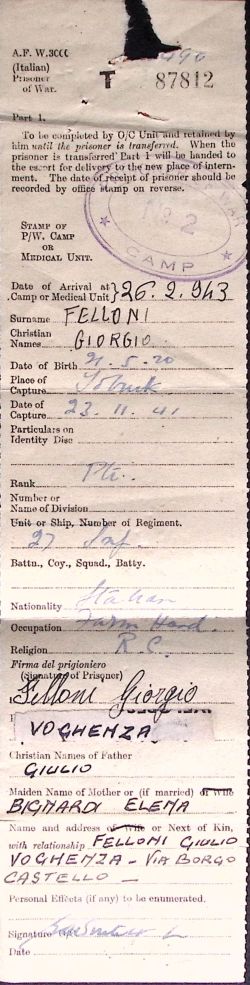 A.F. W.3000
(Italian)
Prisoner
of War.
T 87812
Part 1.
To be completed by O/C Unit and retained by
him until the prisoner is transferred. When the
prisoner is transferred Part 1 will be handed to
the escort for delivery to the new place of intern-
ment. The date of receipt of prisoner should be
recorded by office stamp on reverse.
No. 2
CAMP
STAMP OF
P/W. CAMP
OR
MEDICAL UNIT.
Date of Arrival at
Camp or Medical Unit } 26.2.943
Surname FELLONI
Christian
Names GIORGIO
Date of Birth 21.5.20
Place of
Capture Tobruk
Date of
Capture 23.11.41
Particulars on
Identity Disc
Rank Pte.
Number or
Name of Division
Unit or Ship, Number of Regiment.
27 Inf.
Battn., Coy., Squad., Batty.
Nationality Italian
Occupation Farm Hand
Religion R.C.
Firma del prigioniero
(Signature of Prisoner)
Felloni Giorgio
VOGHENZA
Christian Names of Father
GIULIO
Maiden Name of Mother or (if married) of Wife
BIGNARDI ELENA
Name and address of Wife or Next of Kin,
with relationship FELLONI GIULIO
VOGHENZA - VIA BORGO
CASTELLO -
Personal Effects (if any) to be enumerated.
Signature
Date